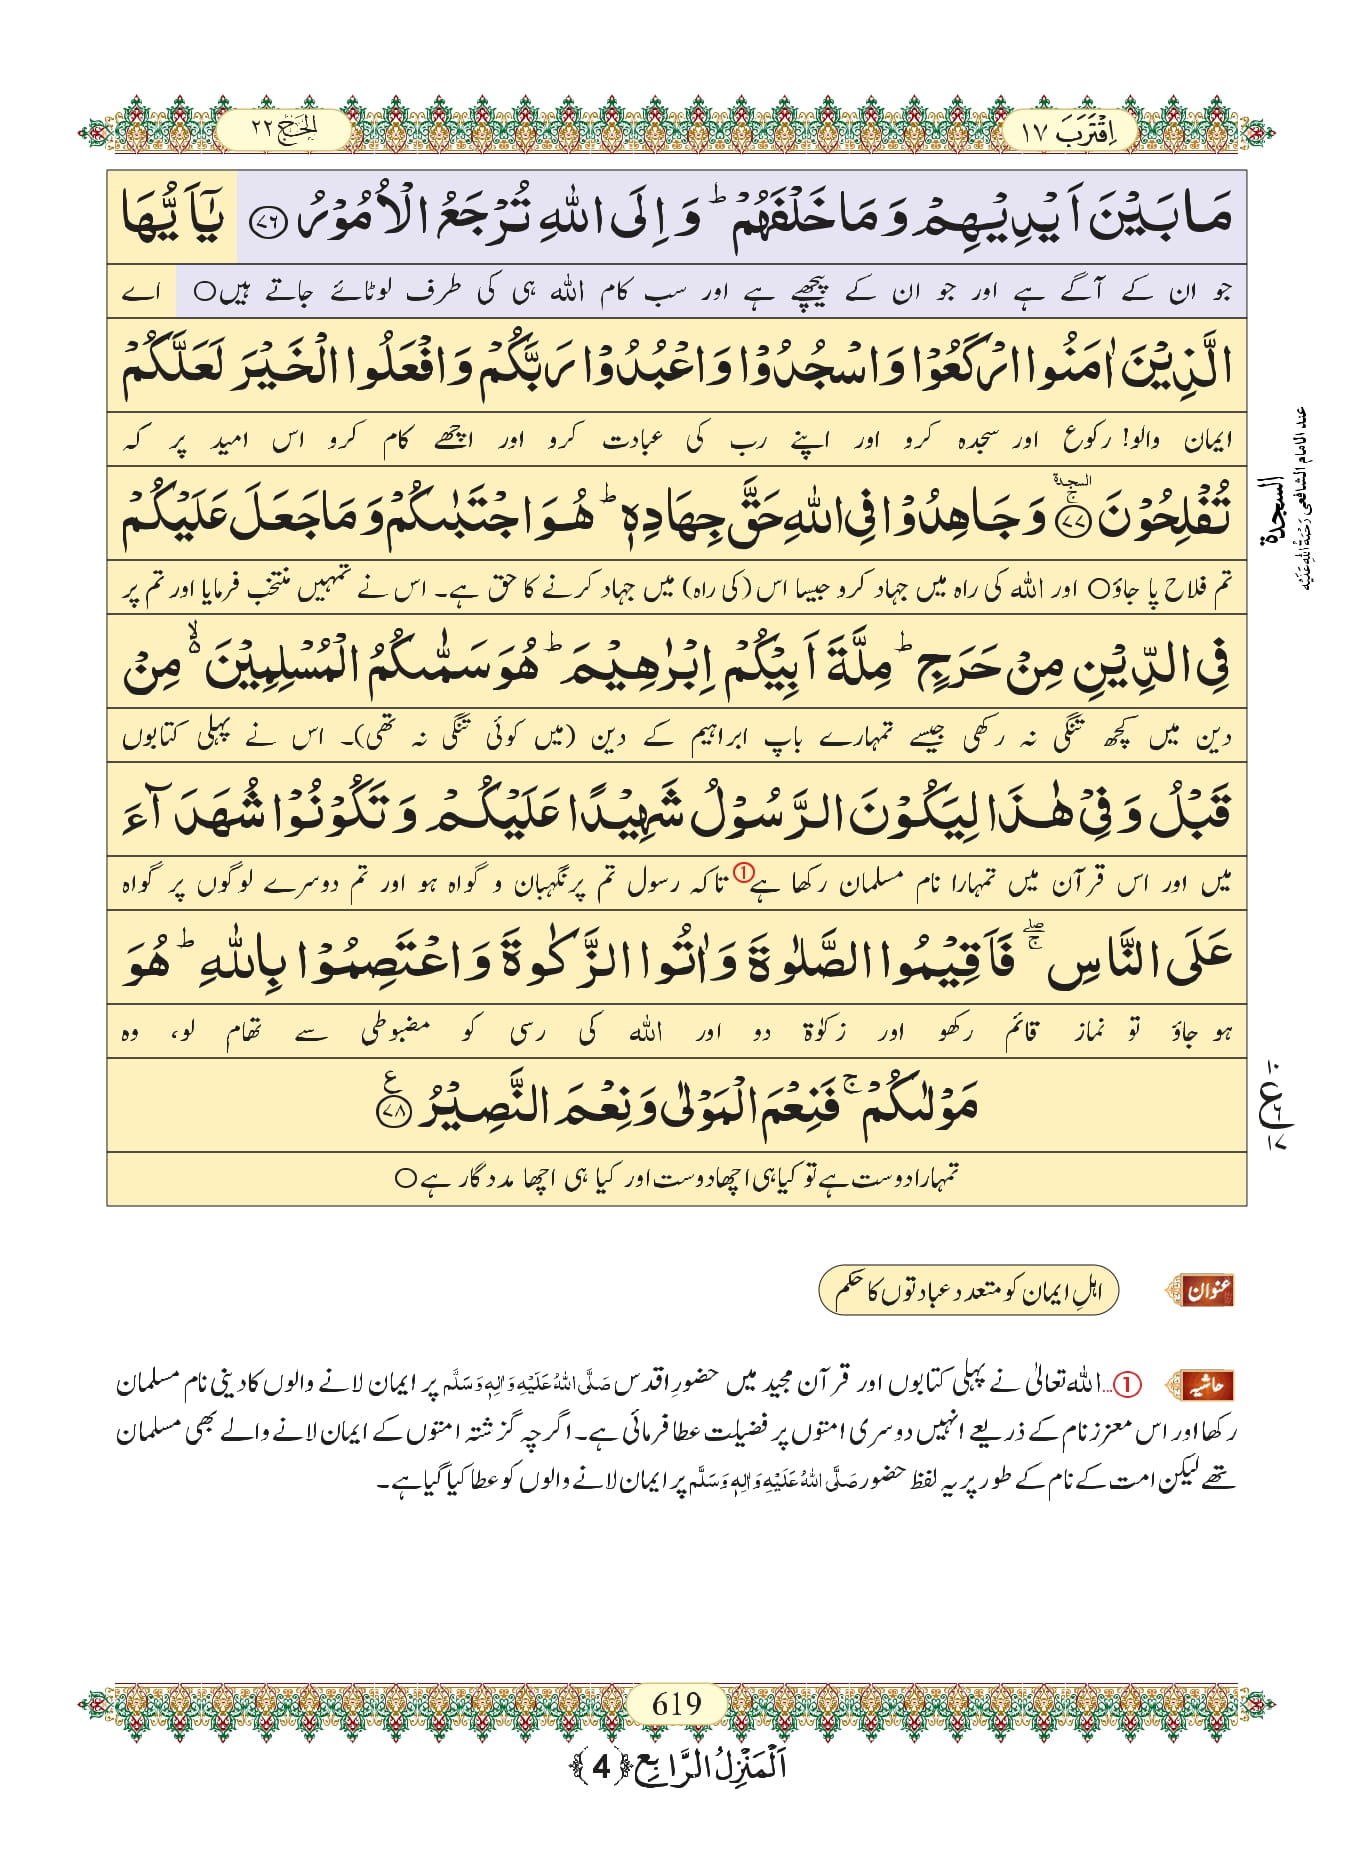 اِقْتَرَبَ ١٧
الحَجّ ٢٢
مَا بَیْنَ اَیْدِیْهِمْ وَ مَا خَلْفَهُمْؕ وَ اِلَی اللّٰهِ تُرْجَعُ الْاُمُوْرُ ﴿۷۶﴾ یٰۤاَیُّهَا
جو ان کے آگے ہے اور جو ان کے پیچھے ہے اور سب کام اللہ ہی کی طرف لوٹائے جاتے ہیں○ اے
الَّذِیْنَ اٰمَنُوا ارْكَعُوْا وَ اسْجُدُوْا وَ اعْبُدُوْا رَبَّكُمْ وَ افْعَلُوا الْخَیْرَ لَعَلَّكُمْ
ایمان والو! رکوع اور سجدہ کرو اور اپنے رب کی عبادت کرو اور اچھے کام کرو اس امید پر کہ
تُفْلِحُوْنَ ﴿۷۷﴾ۚ السجدة وَ جَاهِدُوْا فِی اللّٰهِ حَقَّ جِهَادِهٖؕ هُوَ اجْتَبٰىكُمْ وَ مَا جَعَلَ عَلَیْكُمْ
السجدة
عند الامام الشافعی رَحْمَةُ اللّٰهِ عَلَیْه
تم فلاح پا جاؤ○ اور اللہ کی راہ میں جہاد کرو جیسا اس (کی راہ) میں جہاد کرنے کا حق ہے۔ اس نے تمہیں منتخب فرمایا اور تم پر
فِی الدِّیْنِ مِنْ حَرَجٍؕ مِلَّةَ اَبِیْكُمْ اِبْرٰهِیْمَؕ هُوَ سَمّٰىكُمُ الْمُسْلِمِیْنَ ۙ۬ مِنْ
دین میں کچھ تنگی نہ رکھی جیسے تمہارے باپ ابراہیم کے دین (میں کوئی تنگی نہ تھی)۔ اس نے پہلی کتابوں
قَبْلُ وَ فِیْ هٰذَا لِیَكُوْنَ الرَّسُوْلُ شَهِیْدًا عَلَیْكُمْ وَ تَكُوْنُوْا شُهَدَآءَ
میں اور اس قرآن میں تمہارا نام مسلمان رکھا ہے① تاکہ رسول تم پر نگہبان و گواہ ہو اور تم دوسرے لوگوں پر گواہ
عَلَی النَّاسِ ۚۖ فَاَقِیْمُوا الصَّلٰوةَ وَ اٰتُوا الزَّكٰوةَ وَ اعْتَصِمُوْا بِاللّٰهِؕ هُوَ
ہو جاؤ تو نماز قائم رکھو اور زکوٰۃ دو اور اللہ کی رسی کو مضبوطی سے تھام لو، وہ
مَوْلٰىكُمْۚ فَنِعْمَ الْمَوْلٰی وَ نِعْمَ النَّصِیْرُ ﴿۷۸﴾ ع
۱۰ ع ۶ ۱۷
تمہارا دوست ہے تو کیا ہی اچھا دوست اور کیا ہی اچھا مددگار ہے○
عنوان
اہلِ ایمان کو متعدد عبادتوں کا حکم
حاشیہ
①...اللہ تعالیٰ نے پہلی کتابوں اور قرآن مجید میں حضورِ اقدس صَلَّی اللّٰهُ عَلَیْهِ وَاٰلِهٖ وَسَلَّم پر ایمان لانے والوں کا دینی نام مسلمان
رکھا اور اس معزز نام کے ذریعے انہیں دوسری امتوں پر فضیلت عطا فرمائی ہے۔ اگرچہ گزشتہ امتوں کے ایمان لانے والے بھی مسلمان
تھے لیکن امت کے نام کے طور پر یہ لفظ حضور صَلَّی اللّٰهُ عَلَیْهِ وَاٰلِهٖ وَسَلَّم پر ایمان لانے والوں کو عطا کیا گیا ہے۔
619
اَلْمَنْزِلُ الرَّابِع ﴿4﴾